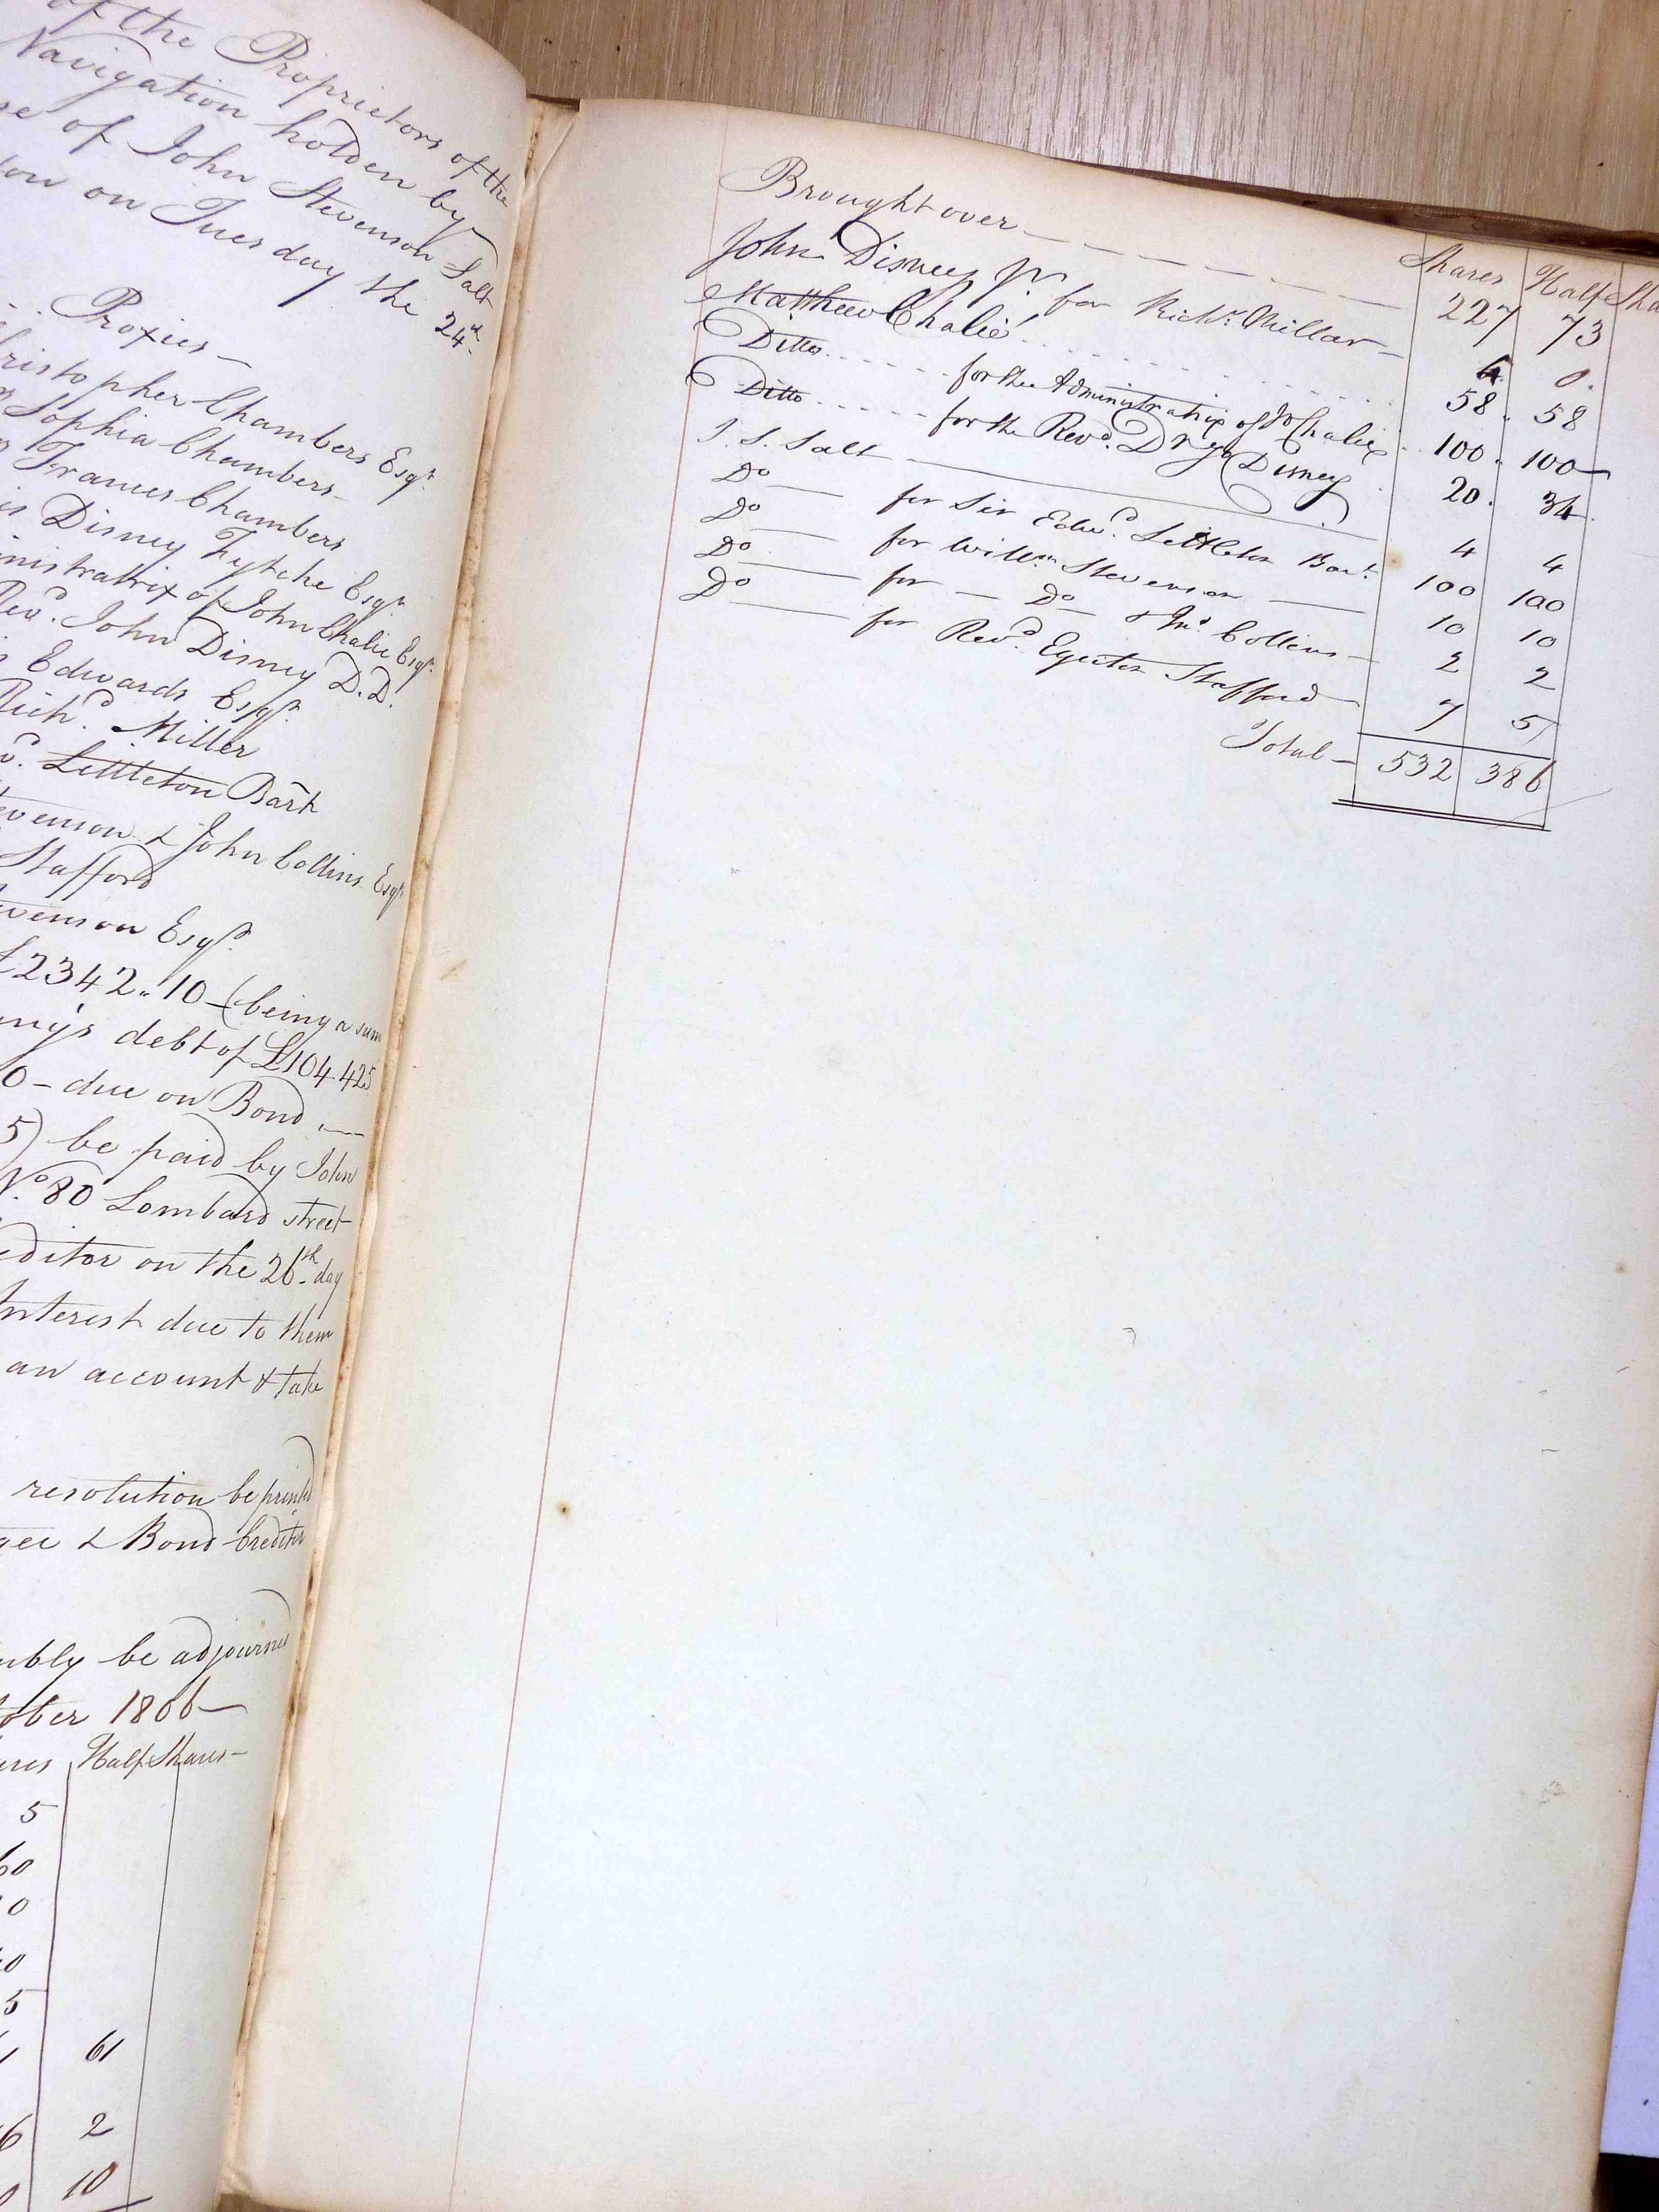 of the Proprietors of the
Navigation holden by
se of John Stevenson Salt
on on Tuesday the 24th
Proxies —
hristopher Chambers Esqr.
Sophia Chambers —
Frances Chambers
is Disney Fytche Esqr.
inistratrix of John Chalie Esqr.
Revd. John Disney D.D.
s Edwards Esqr.
Richd. Miller
d. Littleton Bart
evenson & John Collins Esqr.
Stafford
evenson Esqr.
£2342 " 10 — (being a sum
ny's debt of £104.425
0 — due on Bond —
5) be paid by John
No. 80 Lombard street
editor on the 26th day
Interest due to them
an account & take
resolution be printed
gee & Bond Creditor
mbly be adjourned
tober 1806 —
ares Half Shares —
5
60
0
0
5
1 61
6 2
10
Shares Half Sha
Brought over — — — — — — 227 73
John Disney Jr. for Richd. Millar — 6 0.
Matthew Chalié . . . . . . 58 . 58
Ditto . . . . . for the Administratrix of Jo Chalié . . 100 . 100 —
Ditto . . . . . for the Revd. Dr. Jo Disney . 20 . 34 .
J. S. Salt — 4 4
Do — for Sir Edwd. Littleton Bart. 100 100
Do — for Willm. Stevenson — 10 10
Do — for — Do — & Jno. Collins — 2 2
Do — for Revd. Egerton Stafford — 7 5
Total — 532 386